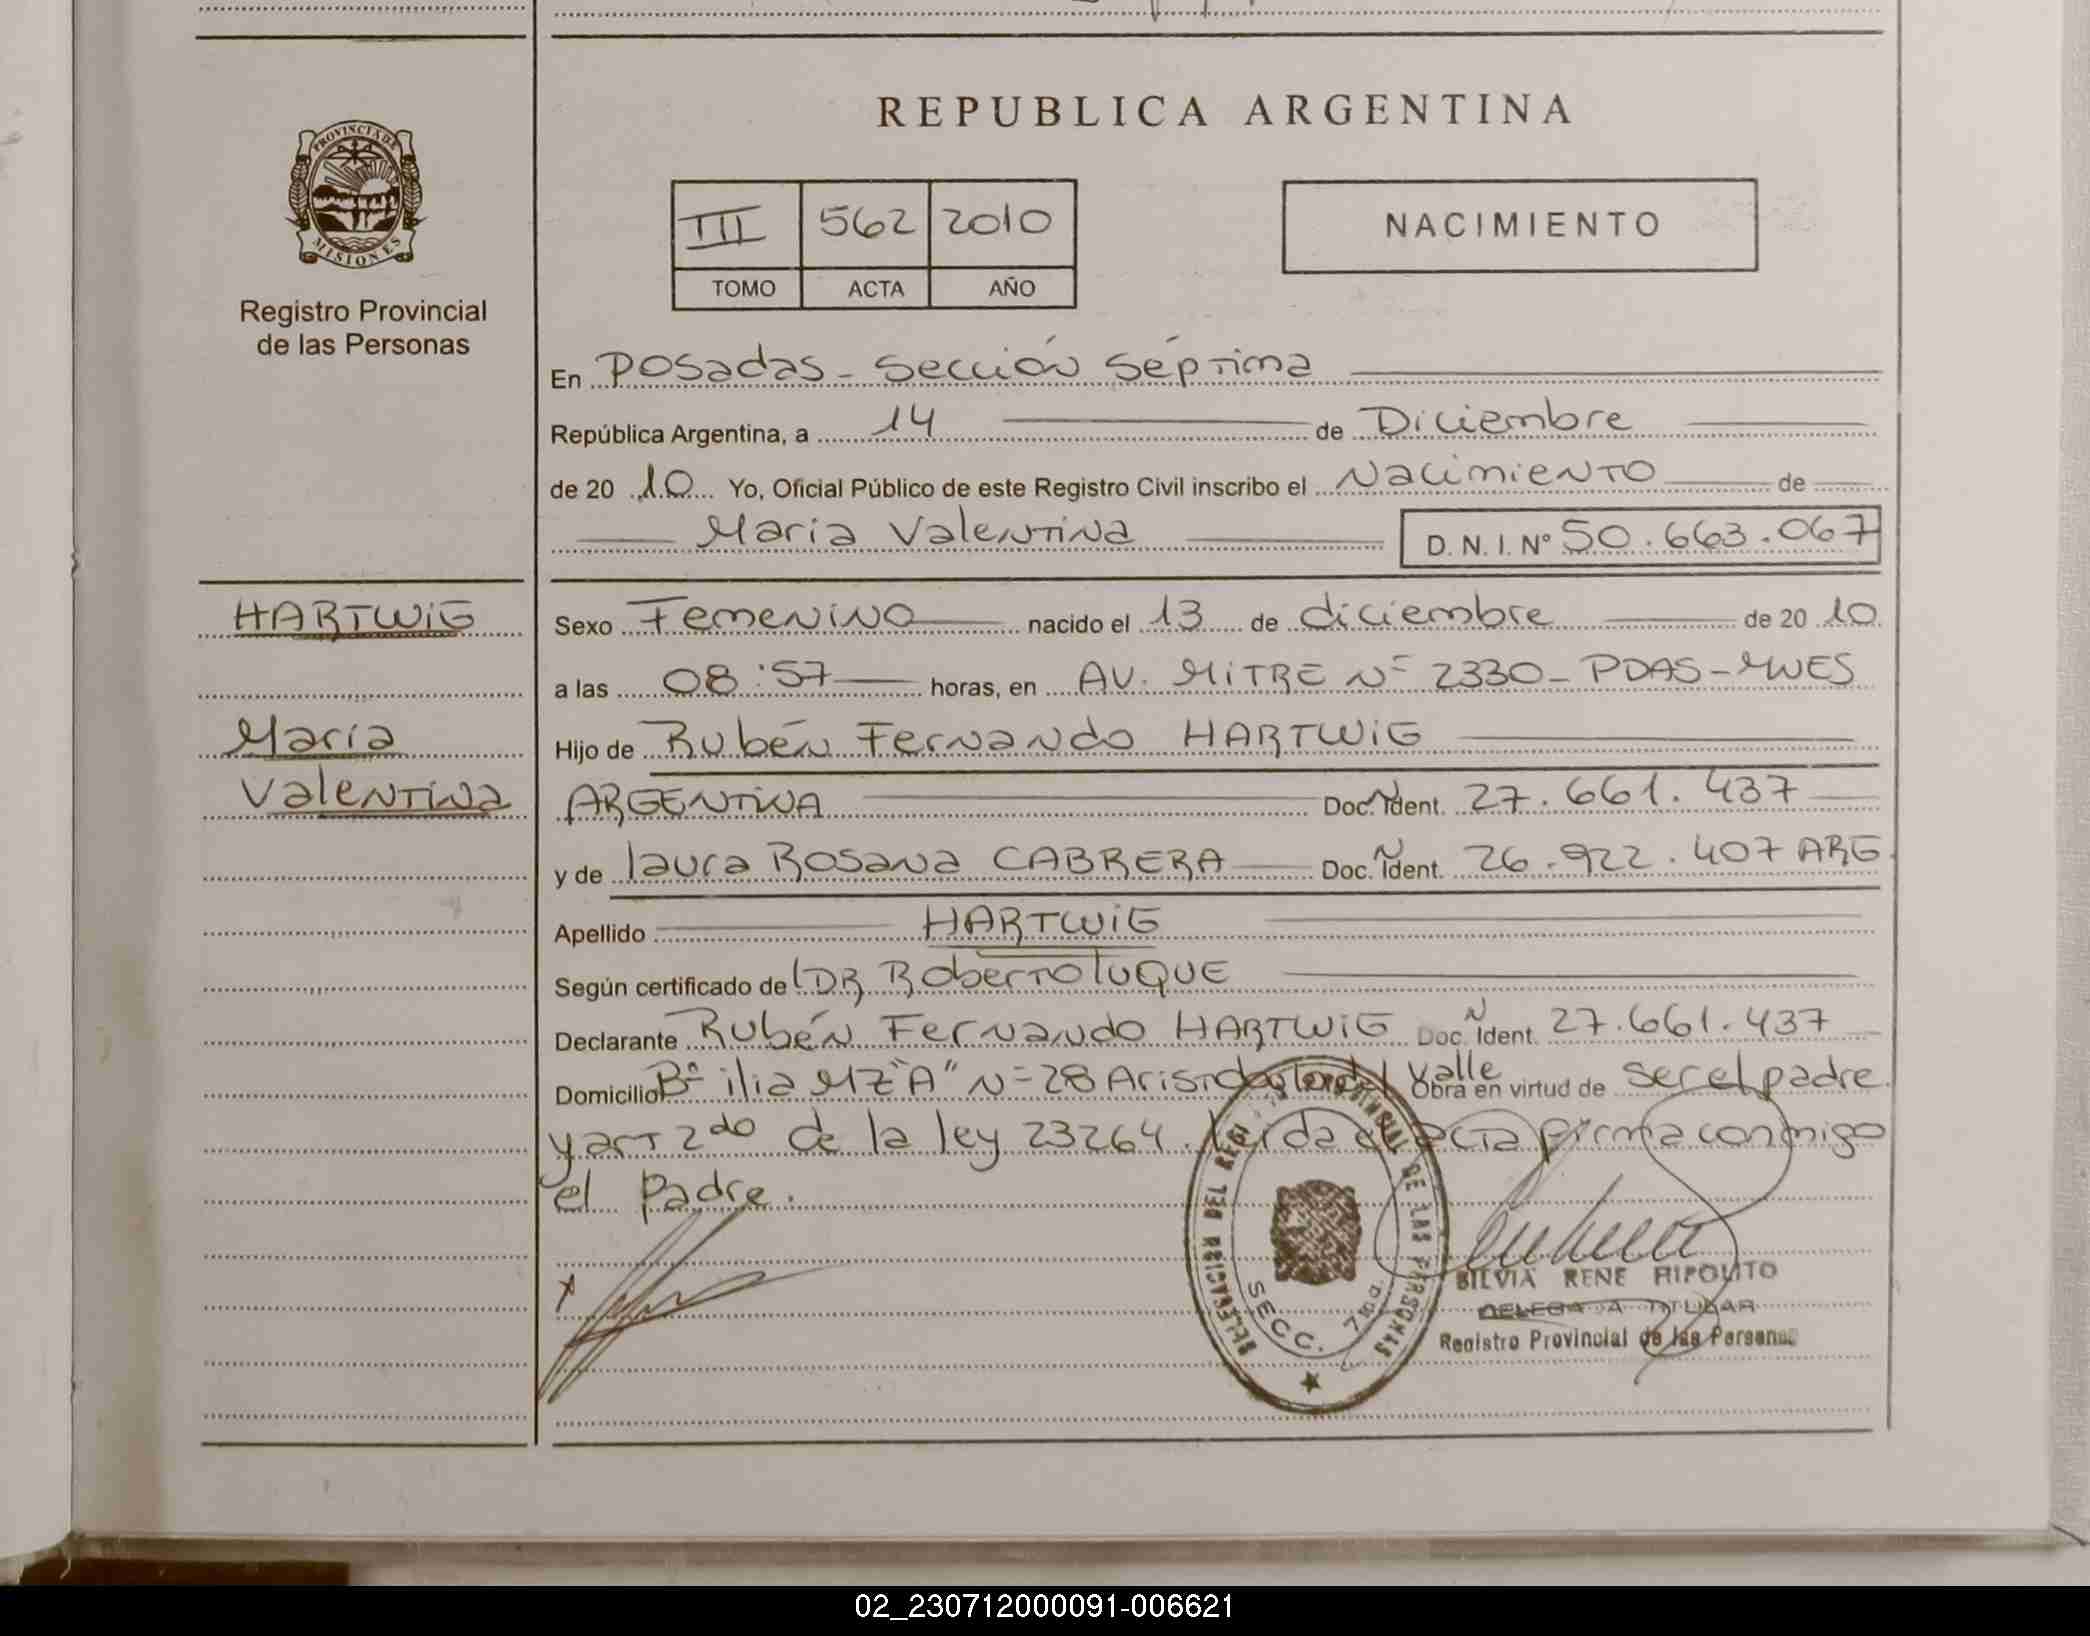 REPUBLICA ARGENTINA
PROVINCIA DE
MISIONES
Registro Provincial
de las Personas
III 562 2010
TOMO ACTA AÑO
NACIMIENTO
En Posadas - Sección Séptima
República Argentina, a 14 de Diciembre
de 20 10 Yo, Oficial Público de este Registro Civil inscribo el Nacimiento de
María Valentina D. N. I. N° 50.663.067
HARTWIG
María
Valentina
Sexo Femenino nacido el 13 de diciembre de 20 10
a las 08:57 horas, en AV. MITRE Nº 2330 - PDAS - MNES
Hijo de Rubén Fernando HARTWIG
ARGENTINA Doc. N Ident. 27.661.437
y de laura Rosana CABRERA Doc. N Ident. 26.922.407 ARG
Apellido HARTWIG
Según certificado de DR Roberto LUQUE
Declarante Rubén Fernando HARTWIG Doc. N Ident. 27.661.437
Domicilio Bº ilia MZ "A" Nº 28 del Valle Obra en virtud de ser el padre
y art 2do de la ley 23264. leída el acta firma conmigo
el Padre.
DELEGACION DEL REGISTRO PROVINCIAL DE LAS PERSONAS
SECC. 7ma.
SILVIA RENE HIPOLITO
DELEGADA TITULAR
Registro Provincial de las Personas
02_230712000091-006621